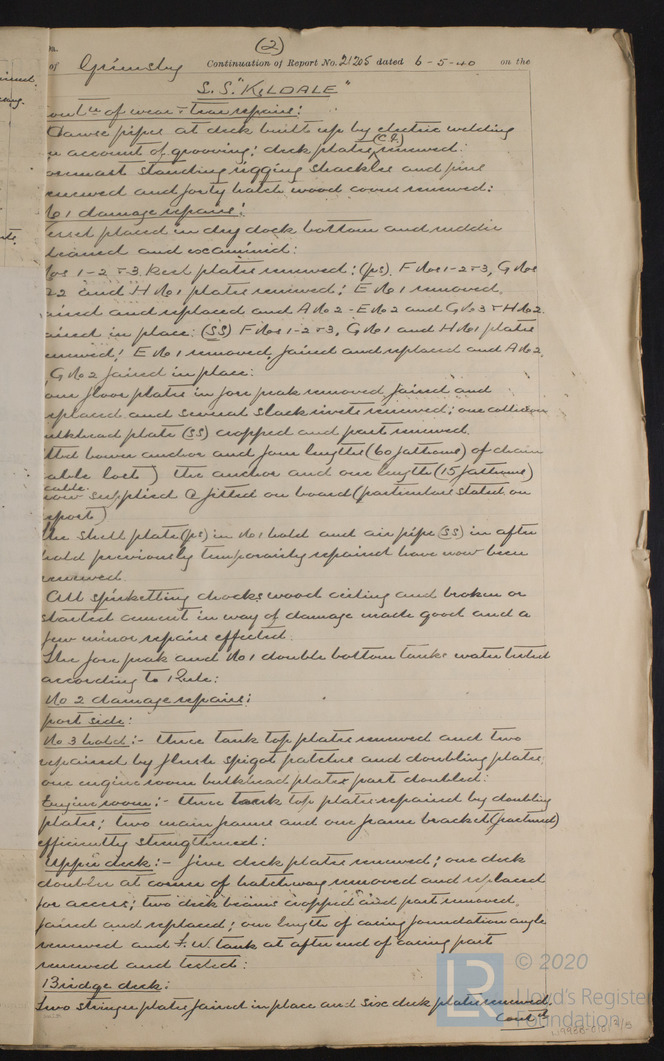 (2)
of Grimsby Continuation of Report No. 21205 dated 6-5-40 on the
S.S. "KILDALE"
of wear & tear repairs:
Hawse pipes at deck built up by electric welding
account of grooving; deck plates renewed:
standing rigging shackles and pins
renewed and forty hatch wood covers renewed:
No 1 damage repairs:
placed in dry dock bottom and rudder
cleaned and examined:
1-2-&-3 keel plates renewed: (ps). F Nos 1-2 & 3, G Nos
2 and H No 1 plates renewed; E No 1 removed,
faired and replaced and A No 2 - E No 2 and G No 3 & H No 2
faired in place: (SS) F Nos 1-2 & 3, G No 1 and H No 1 plates
renewed; E No 1 removed, faired and replaced and A No 2,
G No 2 faired in place:
floor plates in fore peak removed faired and
replaced and several slack rivets renewed; one collision
bulkhead plate (SS) cropped and part renewed.
bower anchor and four lengths (60 fathoms) of chain
cable lost) the anchor and one length (15 fathoms)
cable
now supplied & fitted on board (particulars stated on
report)
The shell plate (ps) in No 1 hold and air pipe (SS) in after
hold previously temporarily repaired have now been
renewed.
All spirketting chocks wood ceiling and broken or
started cement in way of damage made good and a
few minor repairs effected.
The fore peak and No 1 double bottom tanks water tested
according to Rule:
No 2 damage repairs:
port side:
No 3 hold:- three tank top plates renewed and two
repaired by flush spigot patches and doubling plates;
one engine room bulkhead plate part doubled:
Engine room:- three tank top plates repaired by doubling
plates; two main frames and one frame bracket (fractured)
efficiently strengthened:
Upper deck:- five deck plates renewed; one deck
doubler at corner of hatchway removed and replaced
for access; two deck beams cropped and part removed,
faired and replaced; one length of casing foundation angle
renewed and F.W. tank at after end of casing part
renewed and tested:
Bridge deck:
Two stringer plates faired in place and six deck plates renewed.
Contd
© 2020
LR
Lloyd's Register
Foundation